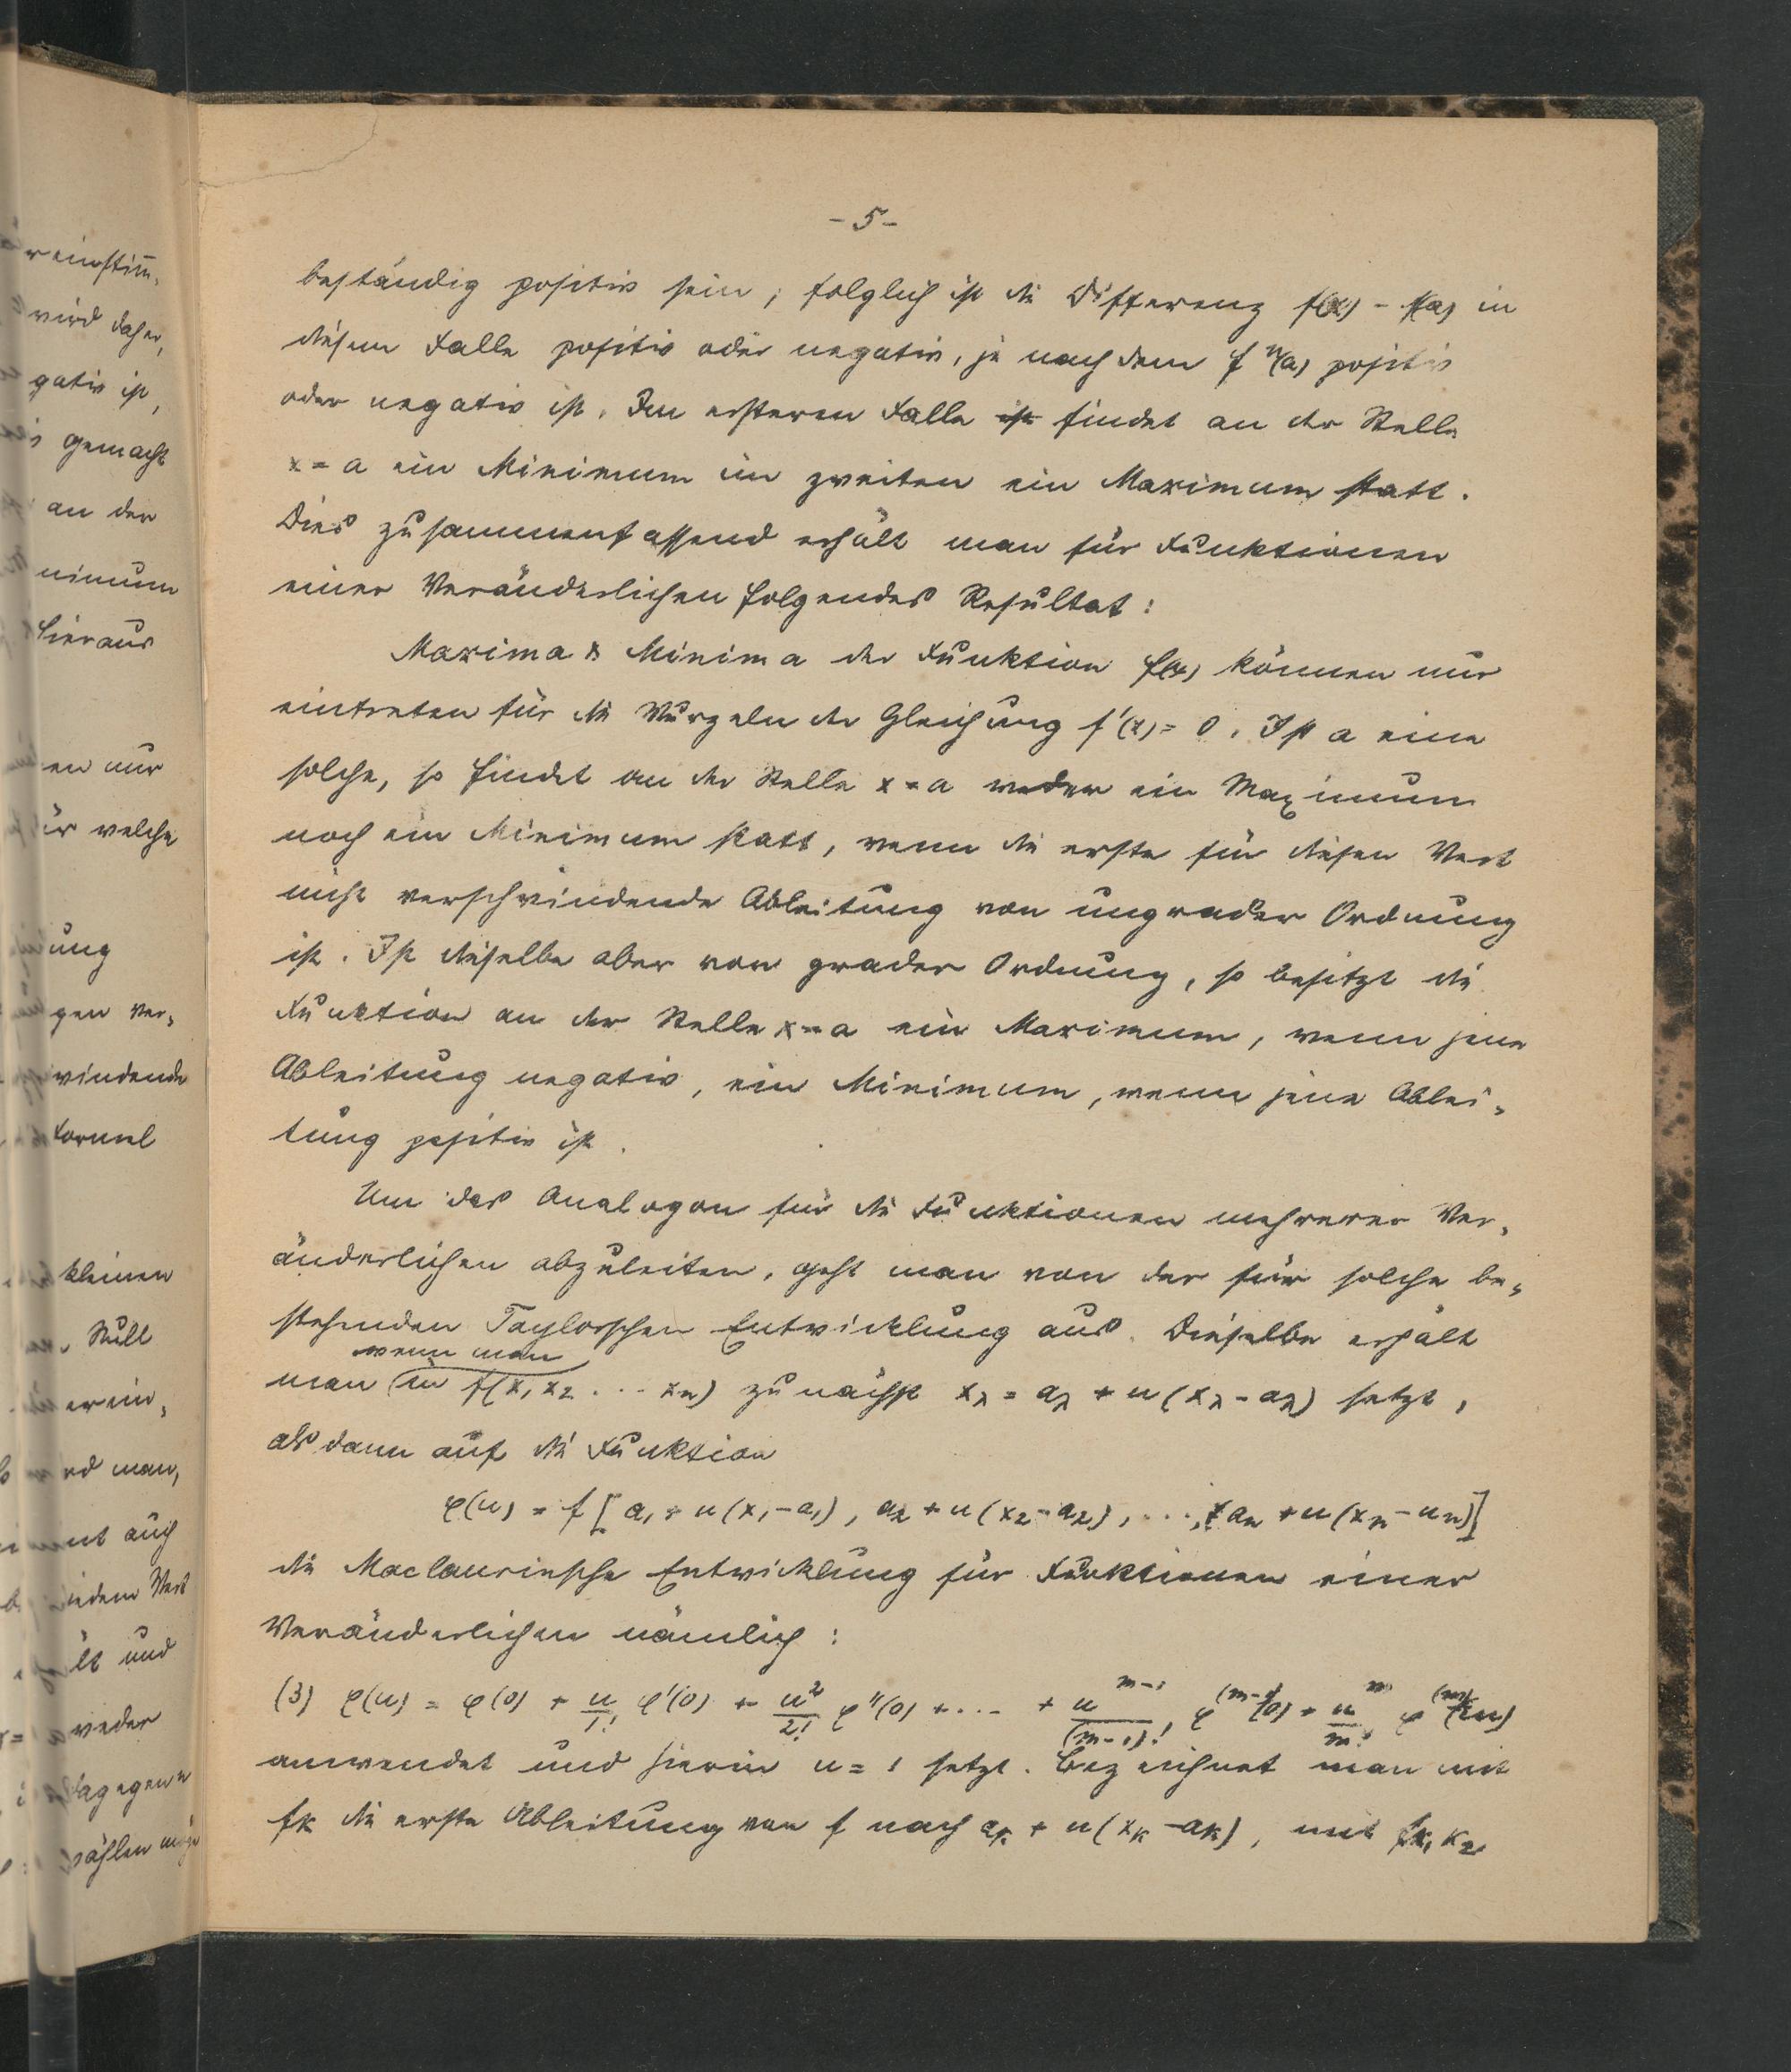 - 5 -
beständig positiv sein; folglich ist die Differenz f(x) - f(a) in
diesem Falle positiv oder negativ, je nachdem fⁿ(a) positiv
oder negativ ist. Im ersteren Falle ist findet an der Stelle
x = a ein Minimum im zweiten ein Maximum statt.
Dies zusammenfassend erhält man für Funktionen
einer Veränderlichen folgendes Resultat:
Maxima & Minima der Funktion f(x) können nur
eintreten für die Wurzeln der Gleichung f'(x) = 0. Ist a eine
solche, so findet an der Stelle x = a weder ein Maximum
noch ein Minimum statt, wenn die erste für diesen Wert
nicht verschwindende Ableitung von ungrader Ordnung
ist. Ist dieselbe aber von grader Ordnung, so besitzt die
Funktion an der Stelle x = a ein Maximum, wenn jene
Ableitung negativ, ein Minimum, wenn jene Ablei-
tung positiv ist.
Um das Analogon für die Funktionen mehrerer Ver-
änderlichen abzuleiten, geht man von der für solche be-
stehenden Taylorschen Entwicklung aus. Dieselbe erhält
wenn man
man in f(x₁ x₂ ... xₙ) zunächst x_λ = a_λ + u(x_λ - a_λ) setzt,
alsdann auf die Funktion
φ(u) = f[a₁ + u(x₁ - a₁), a₂ + u(x₂ - a₂), ..., aₙ + u(xₙ - aₙ)]
die Maclaurinsche Entwicklung für Funktionen einer
Veränderlichen nämlich:
(3) φ(u) = φ(0) + u/1! φ'(0) + u²/2! φ''(0) + ... + u^(m-1)/(m-1)! φ^(m-1)(0) + u^m/m! φ^(m)(εu)
anwendet und hierin u = 1 setzt. Bezeichnet man mit
f_k die erste Ableitung von f nach a_k + u(x_k - a_k), mit f_k₁ k₂
wird daher,
gativ ist,
gemacht
an der
nimum
hieraus
en nur
ür welche
ung
gen ver-
windende
Formel
kleinen
Null
erin-
rd man,
auch
Wert
und
weder
dagegen